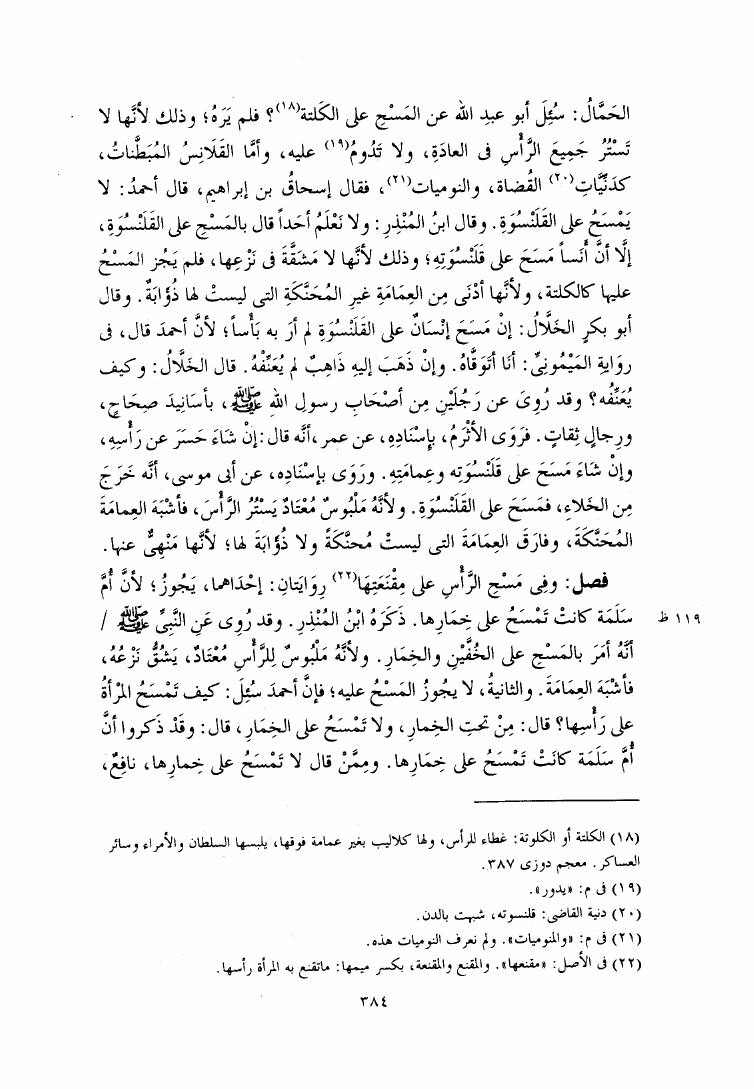 الحَمَّالُ: سُئِلَ أبو عبدِ الله عن المَسْحِ على الكَلتة(١٨)؟ فلم يَرَهُ؛ وذلك لأنَّها لا
تَسْتُرُ جَمِيعَ الرَّأْسِ فى العادَةِ، ولا تَدُومُ(١٩) عليه، وأمَّا القَلَانِسُ المُبَطَّناتُ،
كدَنِّيَّاتِ(٢٠) القُضاة، والنوميات(٢١)، فقال إسحاقُ بن إبراهيم، قال أحمدُ: لا
يَمْسَحُ على القَلَنْسُوَةِ. وقال ابنُ المُنْذِرِ: ولا نَعْلَمُ أحَداً قال بالمَسْحِ على القَلَنْسُوَةِ،
إلَّا أنَّ أَنَساً مَسَحَ على قَلَنْسُوَتِهِ؛ وذلك لأنَّها لا مَشَقَّةَ فى نَزْعِها، فلم يَجُزِ المَسْحُ
عليها كالكلتة، ولأنَّها أدْنَى مِن العِمَامَةِ غيرِ المُحَنَّكَةِ التى ليستْ لها ذُؤَابَةٌ. وقال
أبو بكرٍ الخَلَّالُ: إنْ مَسَحَ إنْسَانٌ على القَلَنْسُوَةِ لم أرَ به بَأْساً؛ لأنَّ أحمدَ قال، فى
روايَةِ المَيْمُونِىِّ: أنا أتَوَقَّاهُ. وإنْ ذَهَبَ إليهِ ذَاهِبٌ لم يُعَنِّفْهُ. قال الخَلَّالُ: وكيف
يُعَنِّفُه؟ وقد رُوِىَ عن رَجُلَيْنِ مِن أصْحَابِ رسولِ الله ﷺ، بأسَانِيدَ صِحَاحٍ،
ورِجالٍ ثِقاتٍ. فرَوَى الأثْرَمُ، بإسْنَادِهِ، عن عمر، أنه قال: إنْ شَاءَ حَسَرَ عن رَأْسِهِ،
وإنْ شَاءَ مَسَحَ على قَلَنْسُوَتِه وعِمامَتِهِ. ورَوَى بإسْنَادِه، عن أبى موسى، أنَّه خَرَجَ
مِن الخَلاءِ، فمَسَحَ على القَلَنْسُوَةِ. ولأنَّهُ مَلْبُوسٌ مُعْتَادٌ يَسْتُرُ الرَّأْسَ، فأشْبَهَ العِمامَةَ
المُحَنَّكَةَ، وفارَق العِمَامَةَ التى ليستْ مُحنَّكَةً ولا ذُؤَابَةَ لها؛ لأنَّها مَنْهِىٌّ عنها.
فصل: وفِى مَسْحِ الرَّأْسِ على مِقْنَعَتِهَا(٢٢) رِوَايَتانِ: إحْدَاهما، يَجُوزُ؛ لأنَّ أُمَّ
سَلَمَة كانتْ تَمْسَحُ على خِمَارِها. ذَكَرَهُ ابْنُ المُنْذِرِ. وقد رُوِى عَنِ النَّبِىِّ ﷺ / ١١٩ ظ
أنَّهُ أمَرَ بالمَسْحِ على الخُفَّيْنِ والخِمَارِ. ولأنَّهُ مَلْبُوسٌ لِلرَّأْسِ مُعْتَادٌ، يَشُقُّ نَزْعُهُ،
فأشْبَهَ العِمَامَةَ. والثانيةُ، لا يجُوزُ المَسْحُ عليه؛ فإنَّ أحمدَ سُئِلَ: كيف تَمْسَحُ المَرْأةُ
على رَأْسِها؟ قال: مِنْ تَحتِ الخِمارِ، ولا تَمْسَحُ على الخِمَارِ، قال: وقَدْ ذَكَروا أنَّ
أُمَّ سَلَمَة كانَتْ تَمْسَحُ على خِمَارِها. ومِمَّنْ قال لا تَمْسَحُ على خِمارِها، نافِعٌ،
(١٨) الكلتة أو الكلوتة: غطاء للرأس، ولها كلاليب بغير عمامة فوقها، يلبسها السلطان والأمراء وسائر
العساكر. معجم دوزى ٣٨٧.
(١٩) فى م: «يدور».
(٢٠) دنية القاضى: قلنسوته، شبهت بالدن.
(٢١) فى م: «والمنوميات». ولم نعرف النوميات هذه.
(٢٢) فى الأصل: «مقنعها». والمقنع والمقنعة، بكسر ميمها: ماتقنع به المرأة رأسها.
٣٨٤